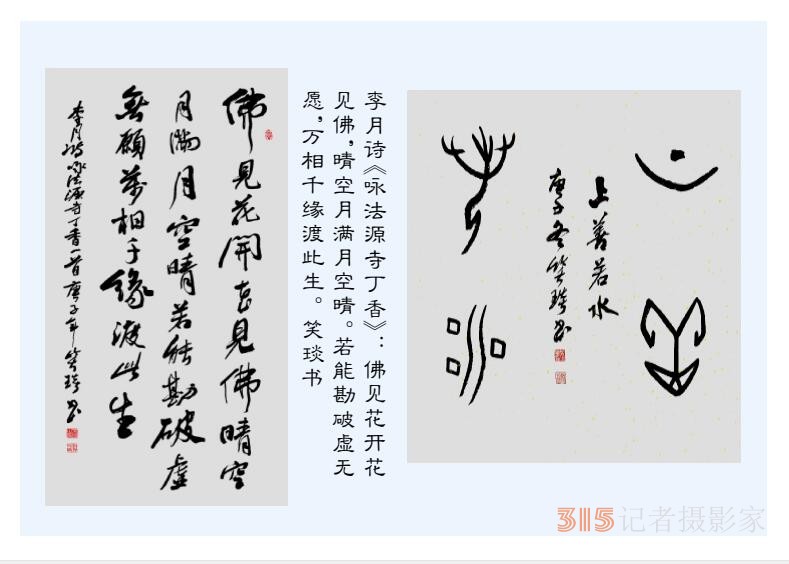 佛見花開花見佛晴空
月滿月空晴若能勘破虛
無願萬相千緣渡此生
李月詩咏法源寺丁香一首庚子年笑琰書
李月诗《咏法源寺丁香》：佛见花开花
见佛，晴空月满月空晴。若能勘破虚无
愿，万相千缘渡此生。 笑琰书
上善
上善若水
庚子冬笑琰书
若水
315记者摄影家